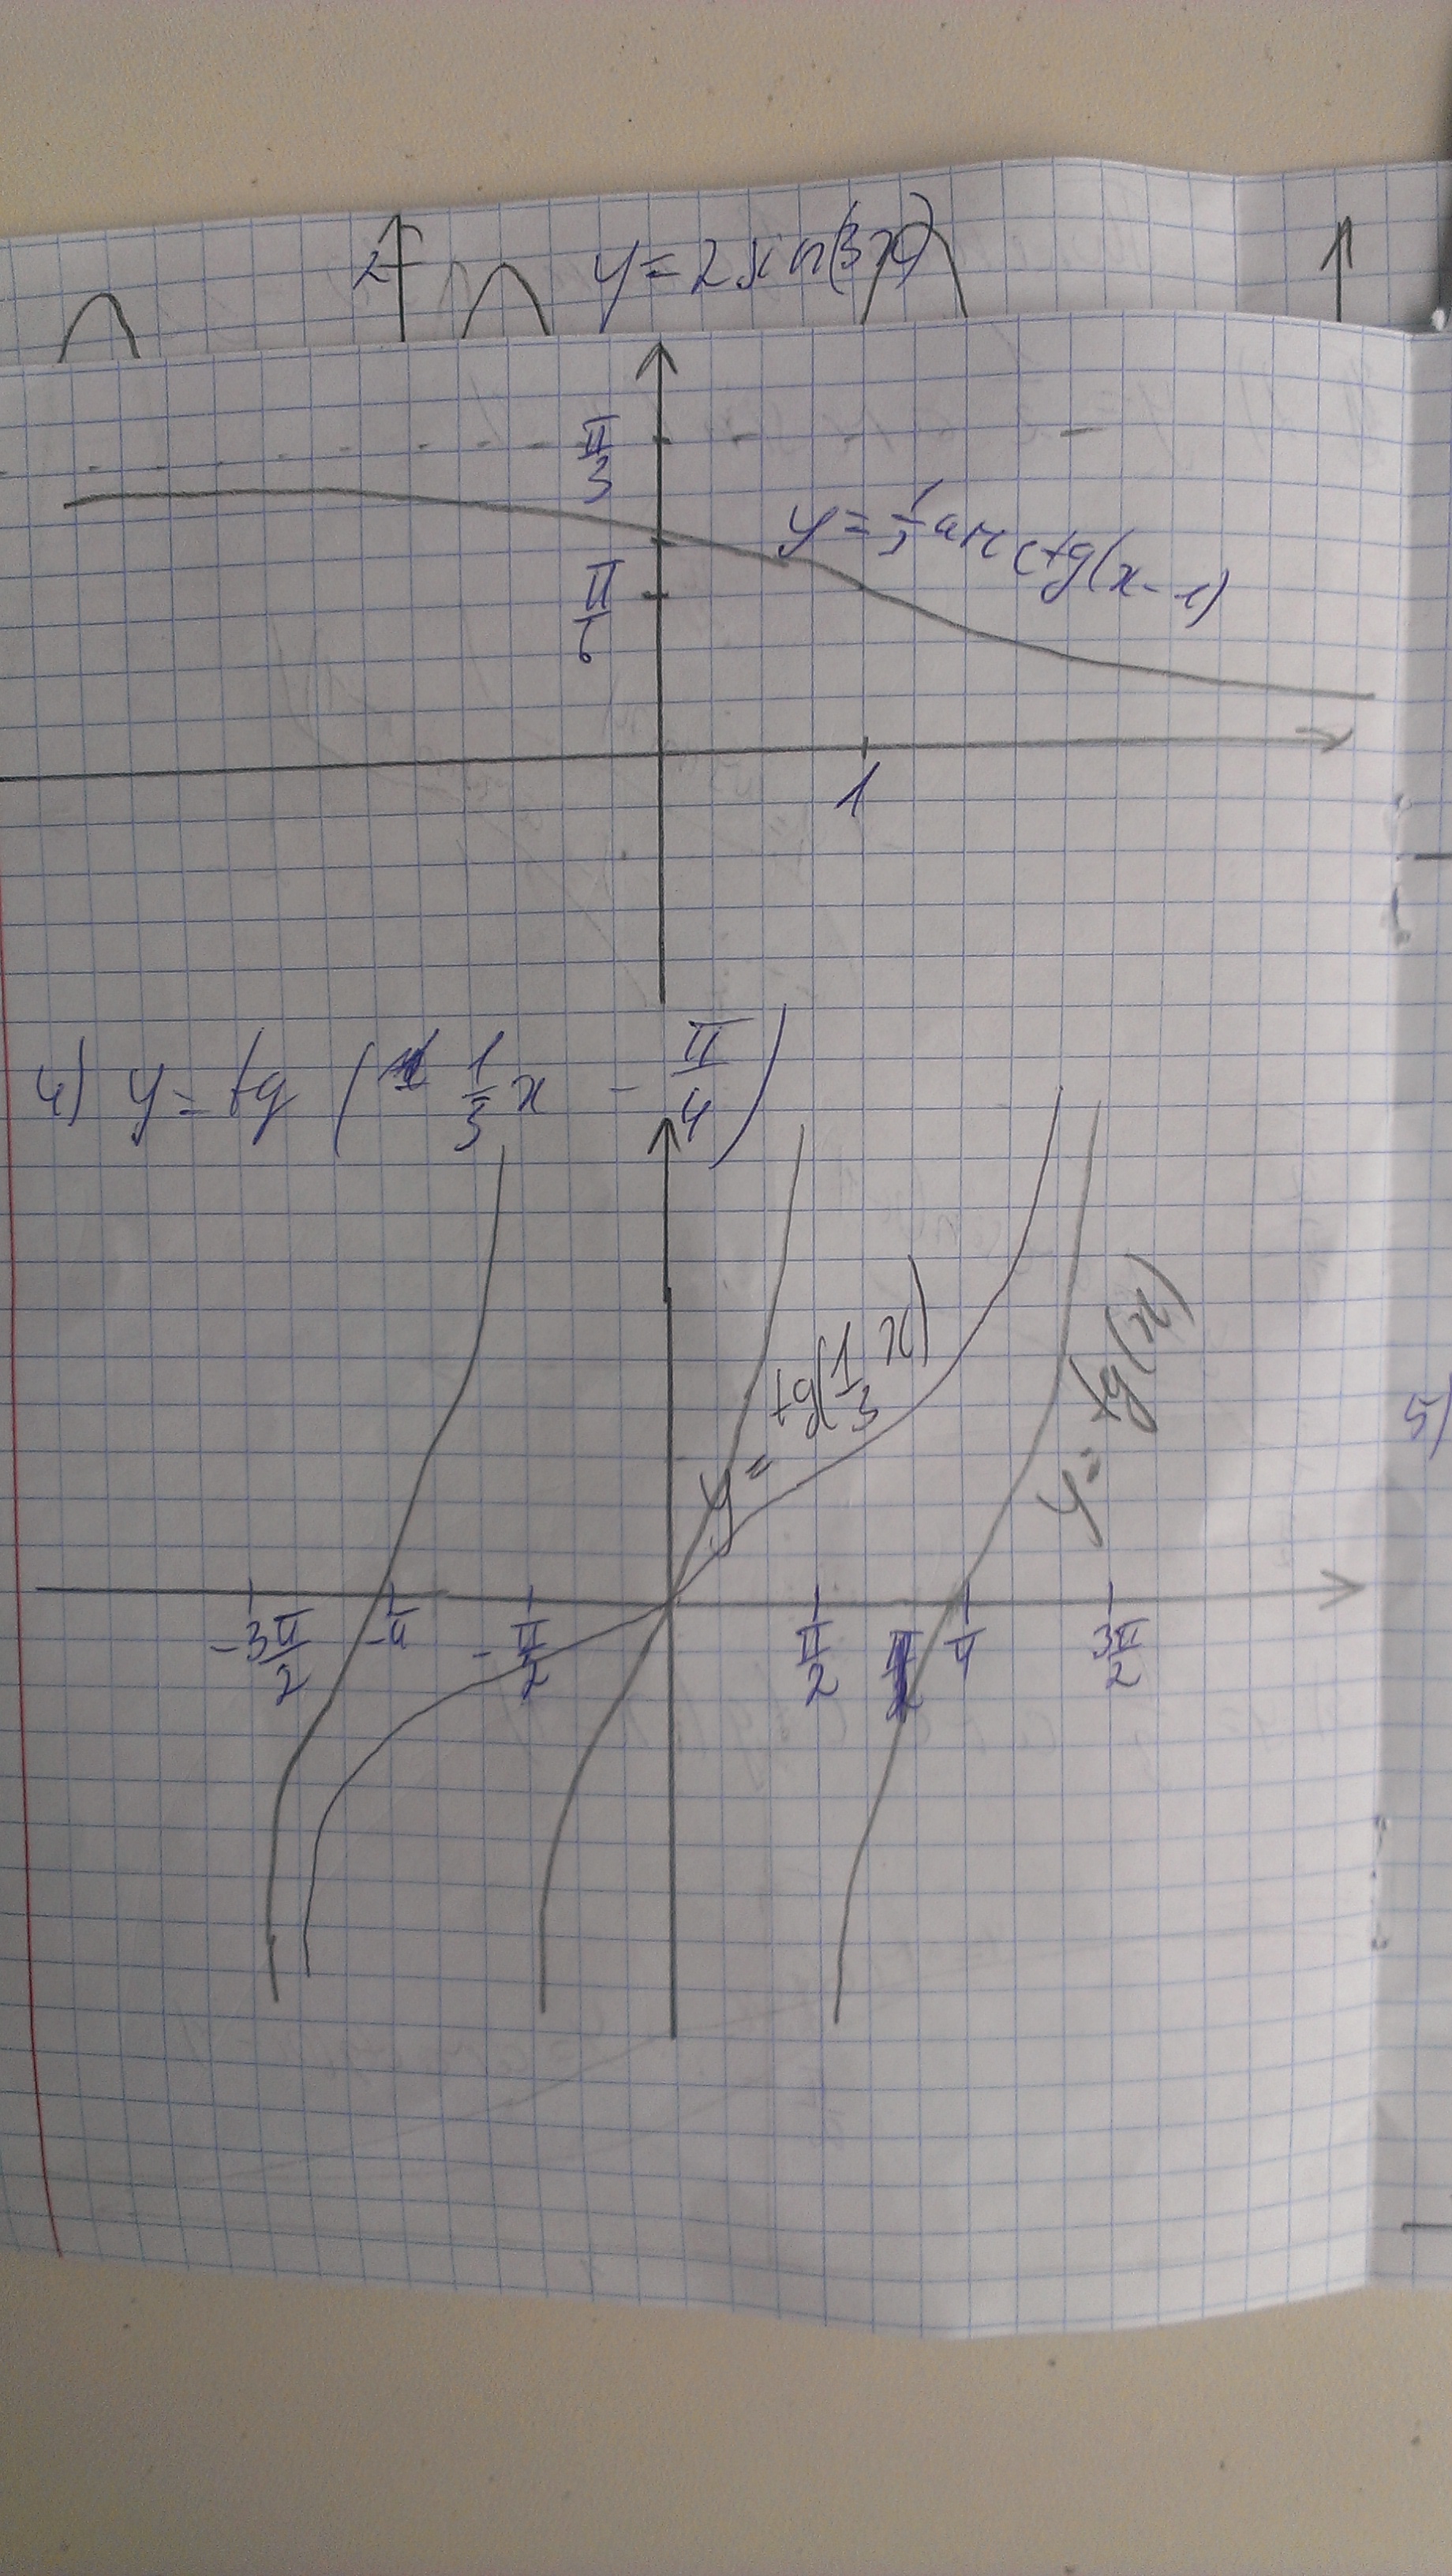 2
y = 2 sin(3x)
π/3
y = 1/3 arcctg(x-1)
π/6
1
4) y = tg (1/3 x - π/4)
y = tg(1/3 x)
y = tg(x)
5)
-3π/2 -π -π/2 π/2 π 3π/2